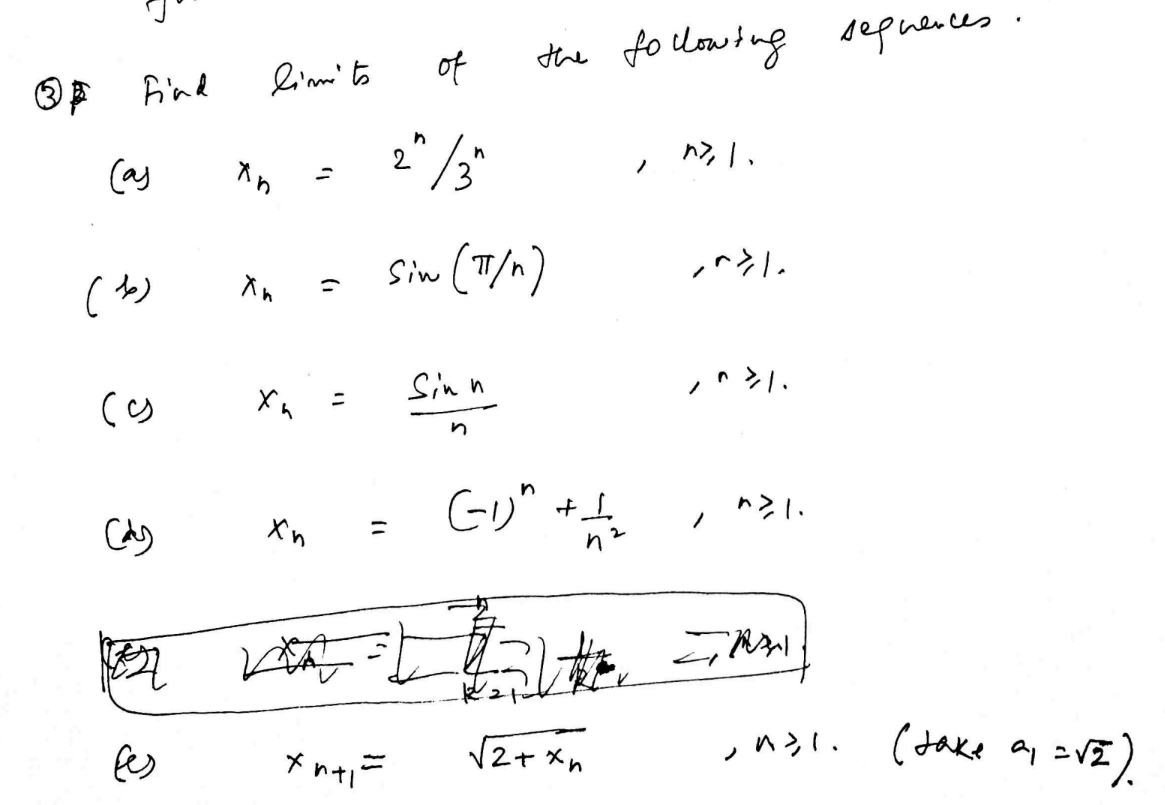 ③ Find limits of the following sequences.
(a) xₙ = 2ⁿ/3ⁿ , n≥1.
(b) xₙ = Sin (π/n) , n≥1.
(c) xₙ = Sin n / n , n≥1.
(d) xₙ = (-1)ⁿ + 1/n² , n≥1.
(e) xₙ₊₁ = √(2+xₙ) , n≥1. (take a₁ = √2).